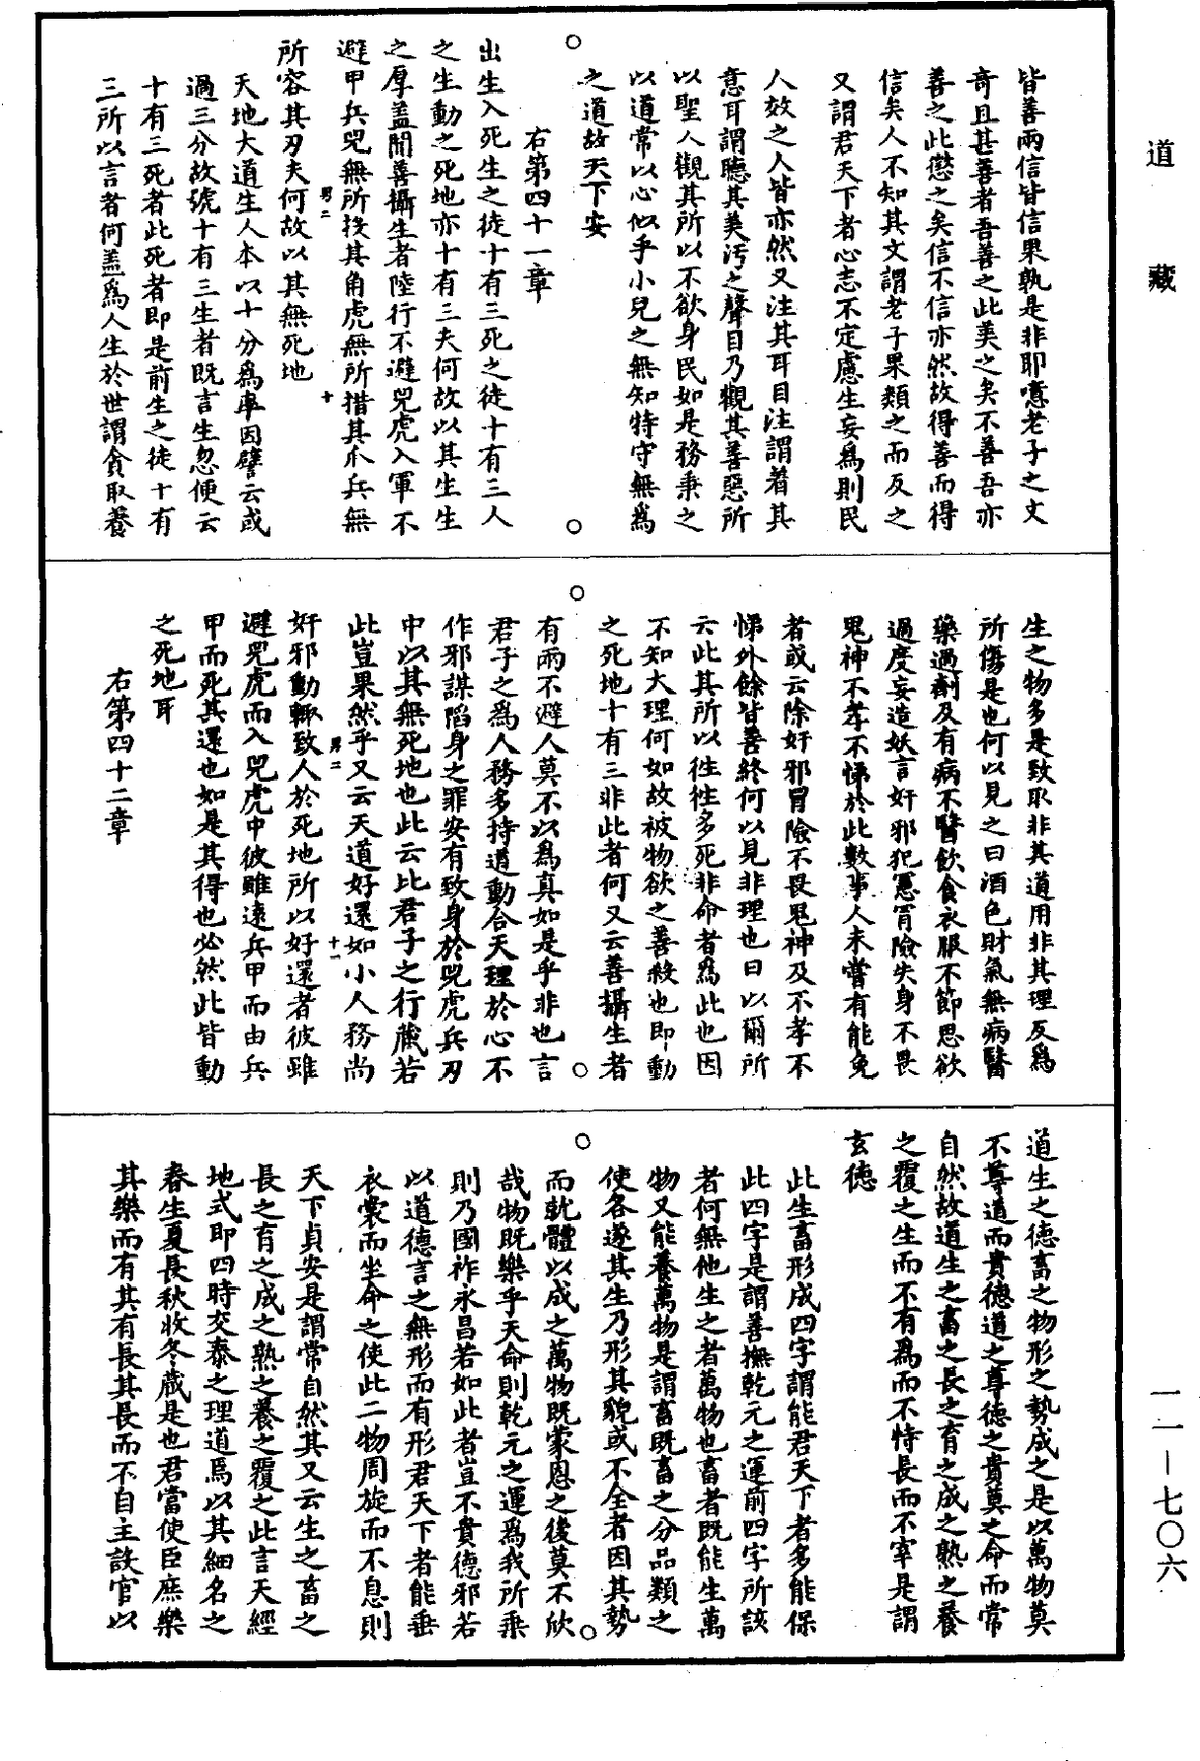 道藏
皆善兩信皆信果孰是非耶噫老子之文
奇且甚善者吾善之此美之矣不善吾亦
善之此愆之矣信不信亦然故得善而得
信矣人不知其文謂老子果類之而反之
又謂君天下者心志不定慮生妄為則民
人效之人皆亦然又注其耳目注謂着其
意耳謂聽其美污之聲目乃觀其善惡所
以聖人觀其所以不欲身民如是務秉之
以道常以心似乎小兒之無知特守無為
之道故天下安
右第四十一章
出生入死生之徒十有三死之徒十有三人
之生動之死地亦十有三夫何故以其生生
之厚蓋聞善攝生者陸行不避兕虎入軍不
避甲兵兕無所投其角虎無所措其爪兵無
男二
十
所容其刃夫何故以其無死地
天地大道生人本以十分為率因譬云或
過三分故號十有三生者既言生忽便云
十有三死者此死者即是前生之徒十有
三所以言者何盖為人生於世謂貪取養
生之物多是致取非其道用非其理反為
所傷是也何以見之曰酒色財氣無病醫
藥過劑及有病不醫飲食衣服不節思欲
過度妄造妖言奸邪犯憲冒險失身不畏
鬼神不孝不悌於此數事人未嘗有能免
者或云除奸邪冒險不畏鬼神及不孝不
悌外餘皆善終何以見非理也曰以爾所
云此其所以往徃多死非命者為此也因
不知大理何如故被物欲之善殺也即動
之死地十有三非此者何又云善攝生者
有兩不避人莫不以為真如是乎非也言
君子之為人務多持道動合天理於心不
作邪謀陷身之罪安有致身於兕虎兵刃
中以其無死地也此云比君子之行藏若
此豈果然乎又云天道好還如小人務尚
男二
十一
奸邪動輙致人於死地所以好還者彼雖
避兕虎而入兕虎中彼雖遠兵甲而由兵
甲而死其還也如是其得也必然此皆動
之死地耳
右第四十二章
道生之德畜之物形之勢成之是以萬物莫
不尊道而貴德道之尊德之貴莫之命而常
自然故道生之畜之長之育之成之熟之養
之覆之生而不有為而不恃長而不宰是謂
玄德
此生畜形成四字謂能君天下者多能保
此四字是謂善撫乾元之運前四字所該
者何無他生之者萬物也畜者既能生萬
物又能養萬物是謂畜既畜之分品類之
使各遂其生乃形其貌或不全者因其勢
而就體以成之萬物既蒙恩之後莫不欣
哉物既樂乎天命則乾元之運為我所乗
則乃國祚永昌若如此者豈不貴德邪若
以道德言之無形而有形君天下者能垂
衣裳而坐命之使此二物周旋而不息則
天下貞安是謂常自然其又云生之畜之
長之育之成之熟之養之覆之此言天經
地式即四時交泰之理道焉以其細名之
春生夏長秋收冬藏是也君當使臣庶樂
其樂而有其有長其長而不自主設官以
一一—七〇六